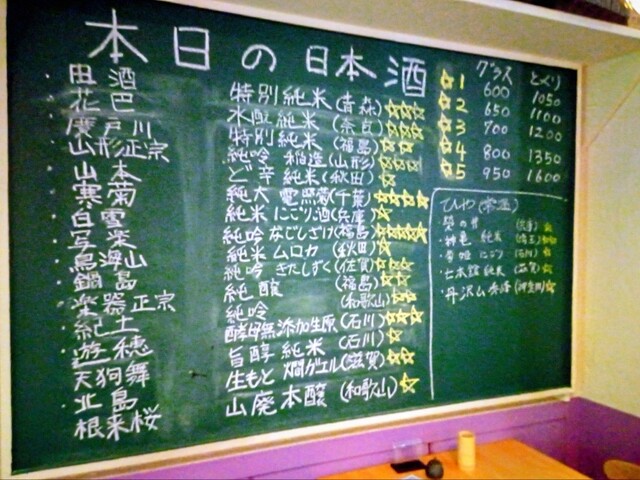 本日の日本酒
・田酒 特別純米(青森)☆☆☆
・花巴 水酛純米(奈良)☆☆☆
・廣戸川 特別純米(福島)☆☆
・山形正宗 純吟 稲造(山形)☆☆☆
・山本 ど辛 純米(秋田)☆☆
・寒菊 純大 電照菊(千葉)☆☆☆☆
・白雪 純米 にごり酒(兵庫)☆
・写楽 純吟 なごしざけ(福島)☆☆☆☆☆
・鳥海山 純米 ムロカ(秋田)☆
・鍋島 純吟 きたしずく(佐賀)☆☆☆
・楽器正宗 純醸(福島)☆☆
・紀土 純吟(和歌山)☆☆
・遊穂 酵母無添加生原(石川)☆☆☆
・天狗舞 旨醇 純米(石川)☆
・北島 生もと 燗ヴェイ(滋賀)☆☆
・根来桜 山廃本醸(和歌山)☆
グラス とくり
☆1 600 1050
☆2 650 1100
☆3 700 1200
☆4 800 1350
☆5 950 1600
ひや(常温)
(兵庫)☆
・神亀 純米(埼玉)☆☆
にごり(石川)☆
・七本鎗 純米(滋賀)☆
・丹沢山 秀峰(神奈川)☆